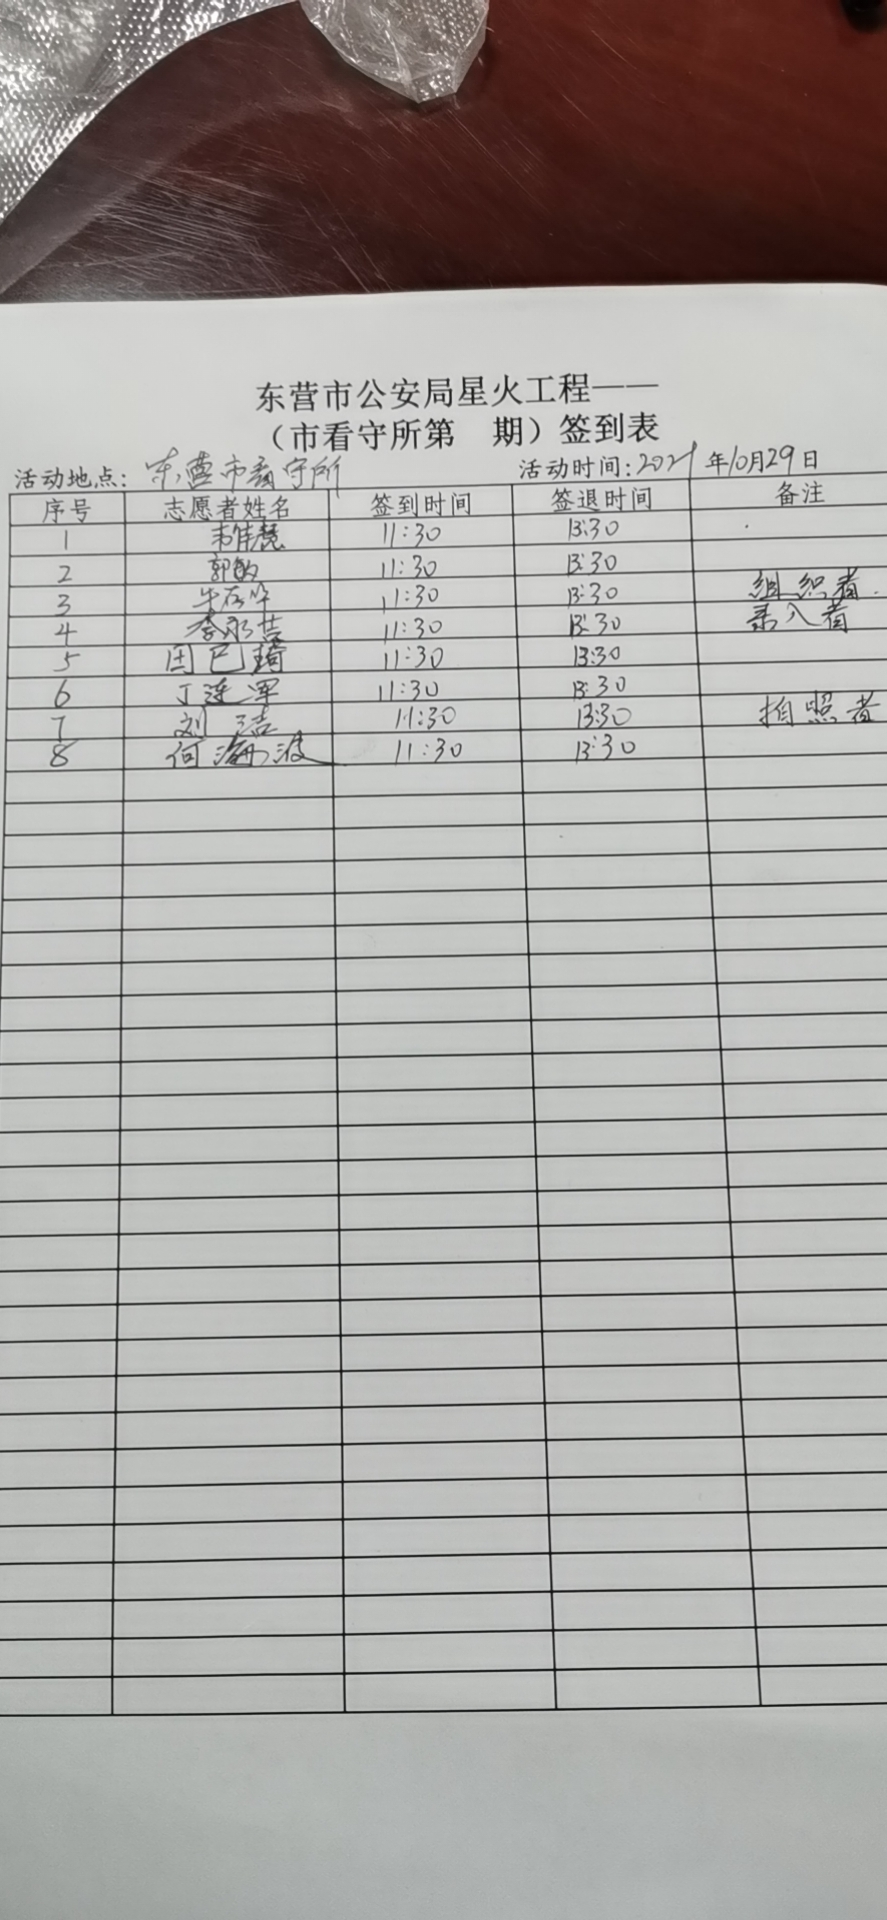 东营市公安局星火工程——
（市看守所第 期）签到表
活动地点：东营市看守所 活动时间：2021年10月29日
序号 志愿者姓名 签到时间 签退时间 备注
1 韦佳慧 11:30 13:30
2 郭敏 11:30 13:30
3 11:30 13:30 组织者
4 李永吉 11:30 13:30 录入者
5 田巳琦 11:30 13:30
6 丁连军 11:30 13:30
7 刘洁 11:30 13:30 拍照者
8 何瀛波 11:30 13:30